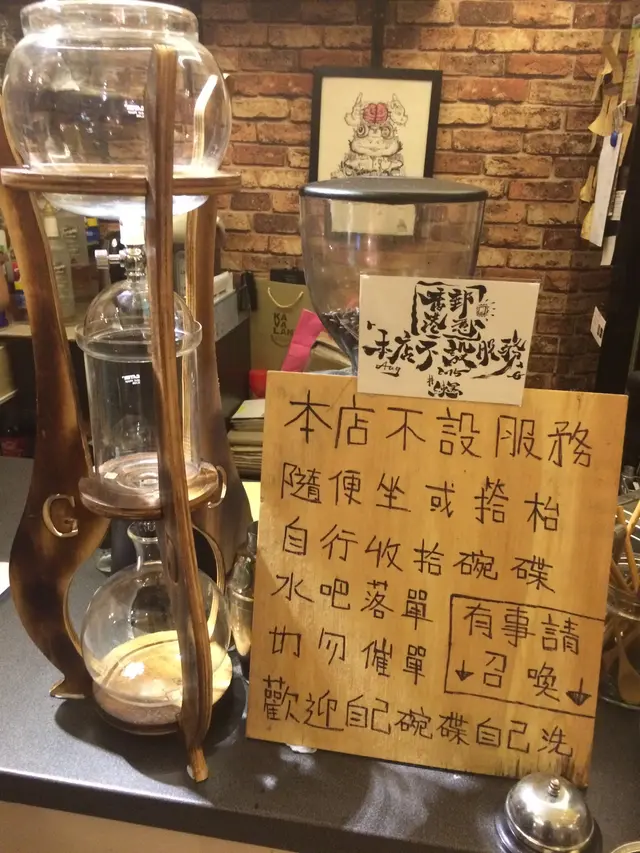 本店不設服務
本店不設服務
隨便坐或搭枱
自行收拾碗碟
水吧落單
切勿催單
有事請
召喚
歡迎自己碗碟自己洗
KA
VA
LAN
G